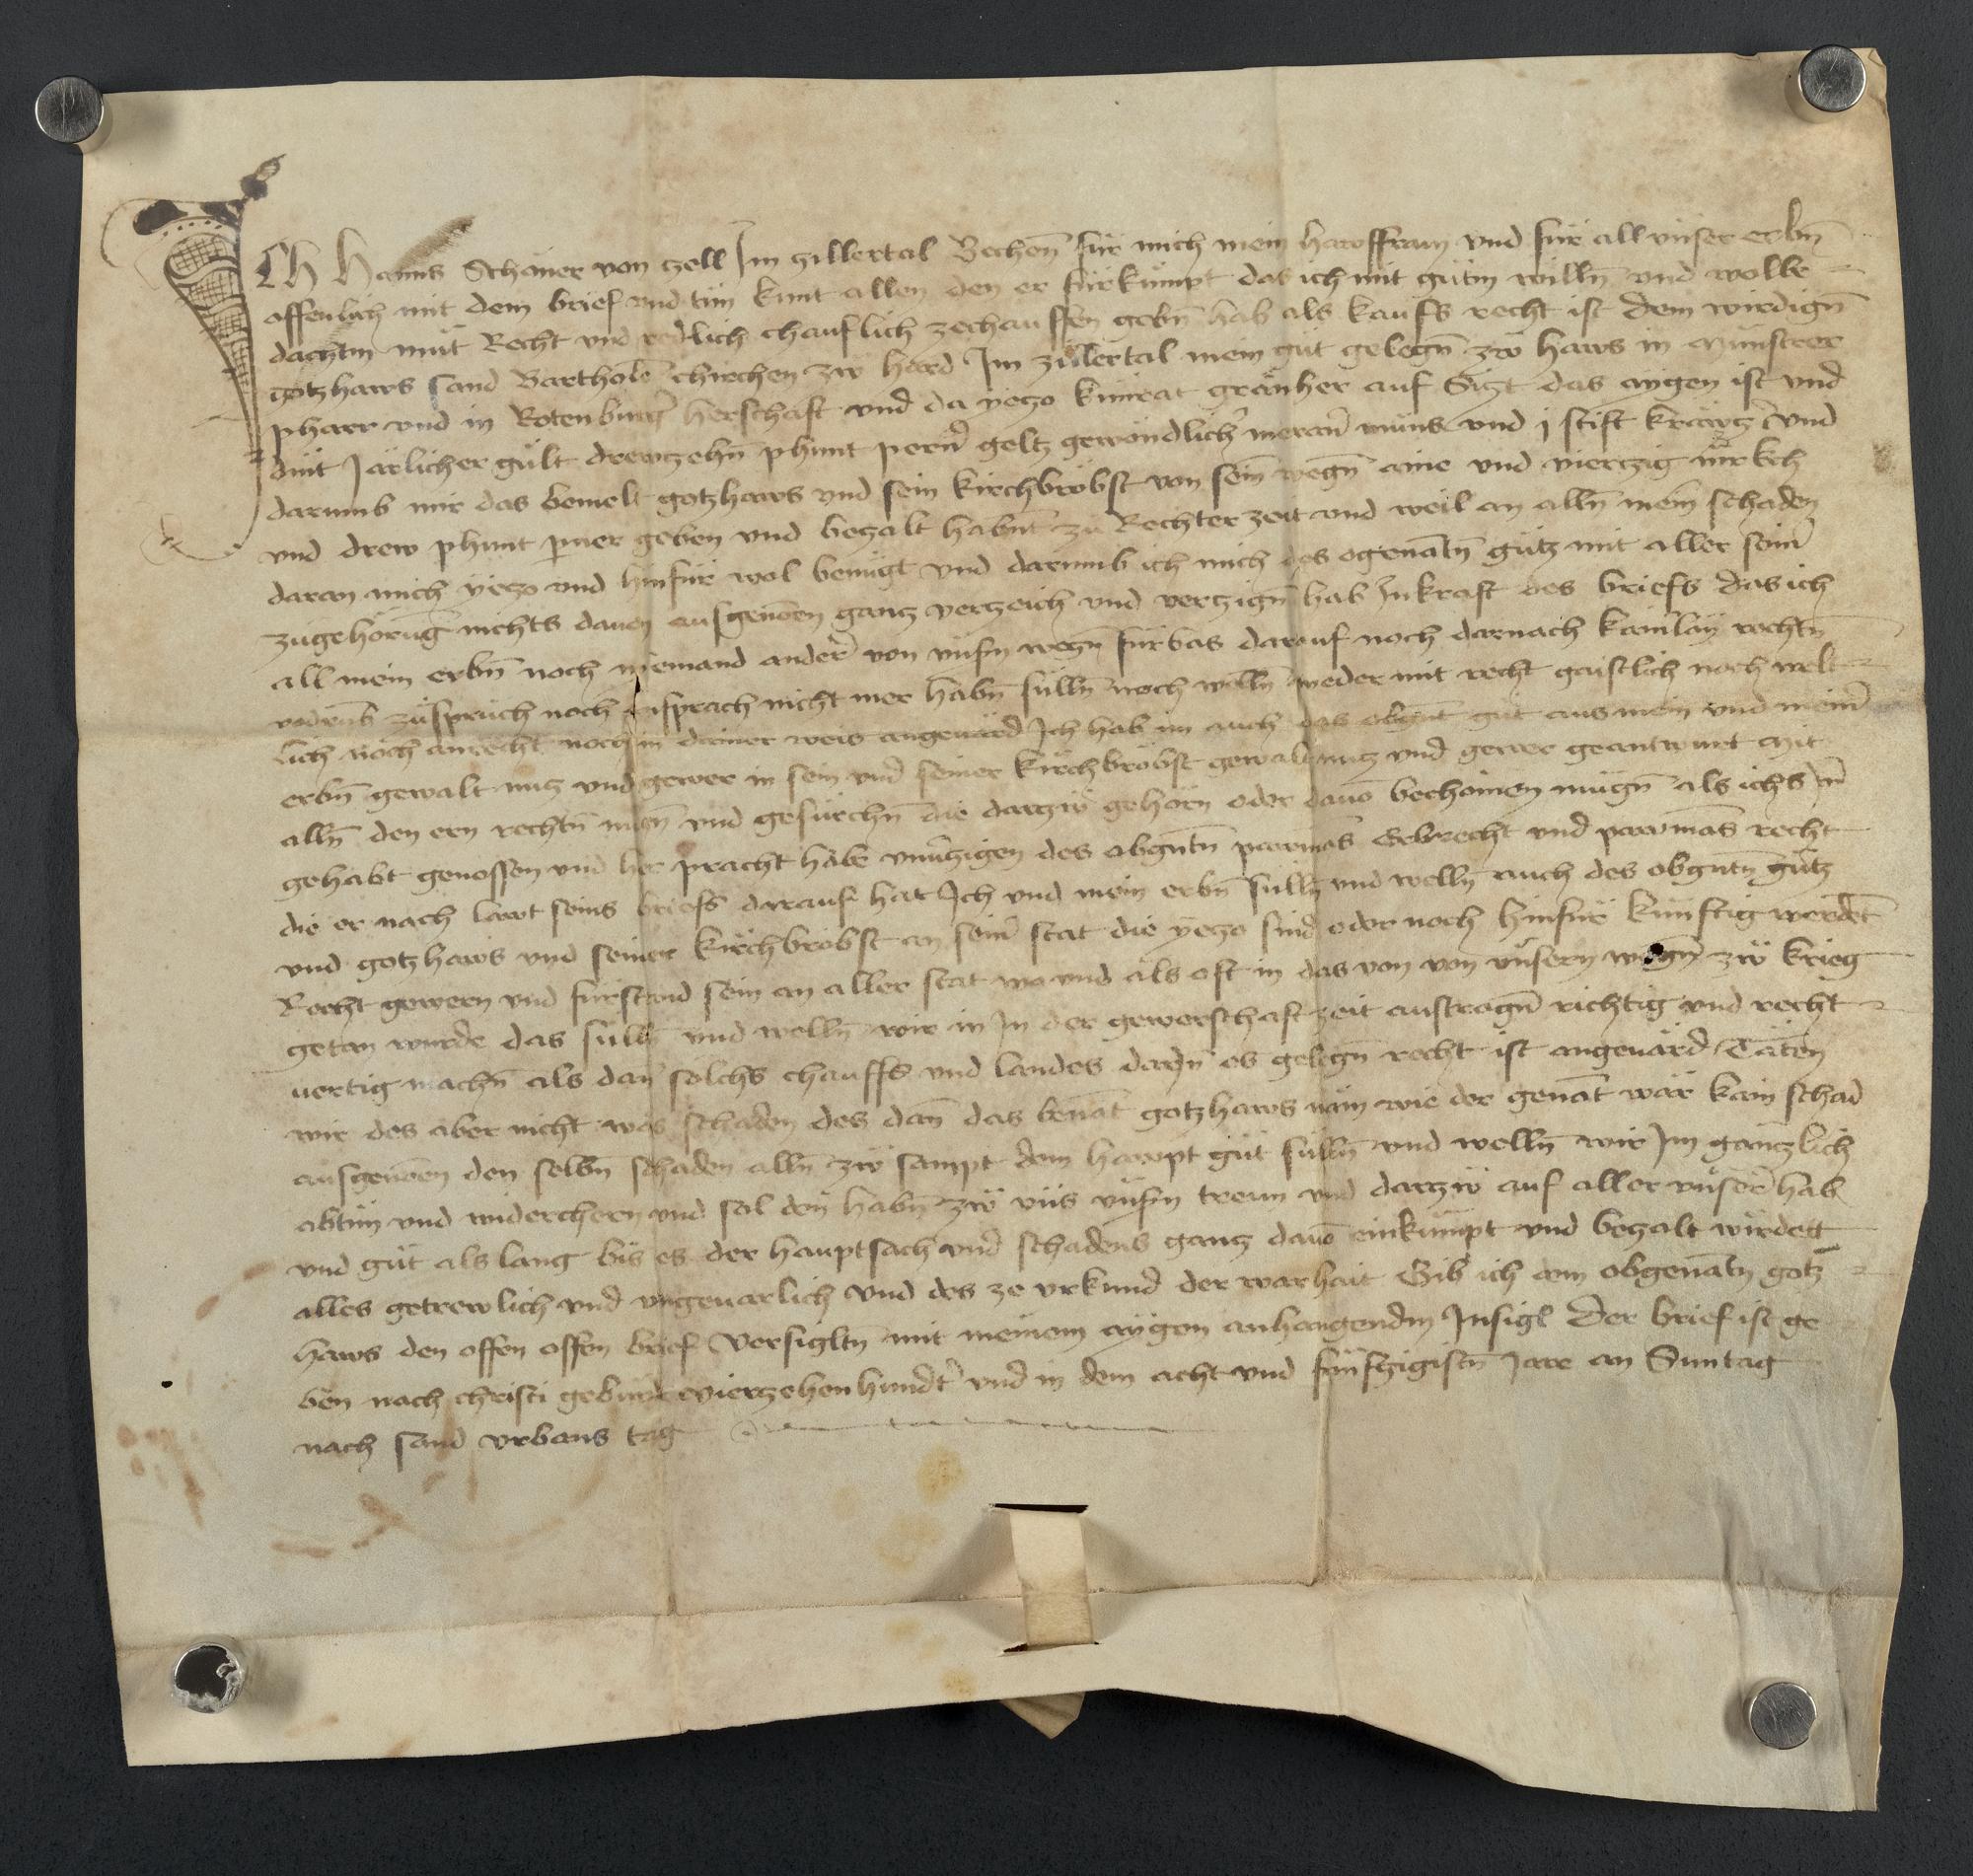 Ich Hanns Schöner von zell Im zillertal Bechen̄ für mich mein hawsffraw vnd für all vnser erbn̄
offenlich mit dem brief vnd tün kunt allen den er fürkumpt das ich mit gütm willn̄ vnd wolbe
dachtm müt Recht vnd redlich chauflich zechauffen gebn̄ hab als kauffs recht ist dem wirdign̄
gotzhaws sand Bartholōe chirchen zw hard Im zillertal mein güt gelegn̄ zw haws in Münstrer
pharr vnd in Rotenburgr̄ herschaft vnd da yezo kunrat gränher auf Sizt das aygen ist vnd
mit Järlicher gült drewzehn̄ phunt pernr̄ geltz gewöndlichr̄ meranr̄ müns vnd j stift krawtzr̄ vnd
darumb mir das bemelt gotzhaws vnd sein kirchbröbst von sein̄ wegn̄ aine vnd vierczig markch
vnd drew phunt pnēr geben vnd bezalt habnt̄ zu Rechter zeit vnd weil an alln̄ mein̄ schaden
daran mich yezo vnd hinfür wol benügt vnd darumb ich mich des egenātn̄ gütz mit aller seinr̄
zügehörūg nichts dauon ausgenōen gancz verzeich vnd verzign̄ hab Inkraft des briefs das ich
all mein erbn̄ noch niemand anderr̄ von vnsrn̄ wegn̄ fürbas darauf noch darnach kainrlay rechtn̄
vodrūs züsprüch noch ansprach nicht mer habn̄ sülln̄ noch welln̄ weder mit recht gaistlich noch welt
lich noch anrecht noch in dhainer weis angeuärd Ich hab im auch das obgnt̄ güt aus mein vnd meinr̄
erbn̄ gewalt nuz vnd gewer in sein vnd seiner kirchbröbst gewalt nuz vnd gewer geantwurt mit
alln̄ den ern rechtn̄ nuczn̄ vnd gesüechn̄ die darzw gehörn oder dauō bechömen mügn̄ als ichs Inr̄
gehabt genossen vnd her pracht habe vnuerzigen des obgntn̄ pawmās Erbrecht vnd pawmās recht
die er nach lawt seins briefs darauf hat Ich vnd mein erbn̄ sülln̄ vnd welln̄ auch des obgntn̄ gütz
vnd gotzhaws vnd seiner kirchbröbst an seinr̄ stat die yezo sind oder noch hinfür künftig werdēt
Recht gewern vnd fürstand sein an aller stat wo vnd als oft in das von von vnsern wegn̄ zw krieg
getan wurde das sülln̄ vnd welln̄ wir in In der gewerschaft zeit austragn̄ richtig vnd recht
uertig machn̄ als dan̄ sölchs chauffs vnd landes darjn̄ es gelegn̄ recht ist angeuärd Täten
wir des aber nicht was schaden des dan̄ das benāt gotzhaws näm wie der genāt wär kain schad
ausgenōen den selbn̄ schaden alln̄ zw sampt dem hawpt güt sülln̄ vnd welln̄ wir Im gänczlich
abtün vnd widerchern vnd sol den̄ habn̄ zw vns vnsrn̄ trewn vnd darzw auf aller vnserr̄ hab
vnd güt als lang bis es der hauptsach vnd schadens gancz dauō einkümpt vnd bezalt wirdett
alles getrewlich vnd vngeuarlich vnd des ze vrkund der warhait Gib ich dem obgenātn̄ gotz
haws den offen offen brief versigltn̄ mit meinem aygen anhangendm Insigl Der brief ist ge
ben nach christi geburde vierzehenhundtr̄ vnd in dem acht vnd fünfzigistn̄ Jare an Suntag
nach sand vrbans tag